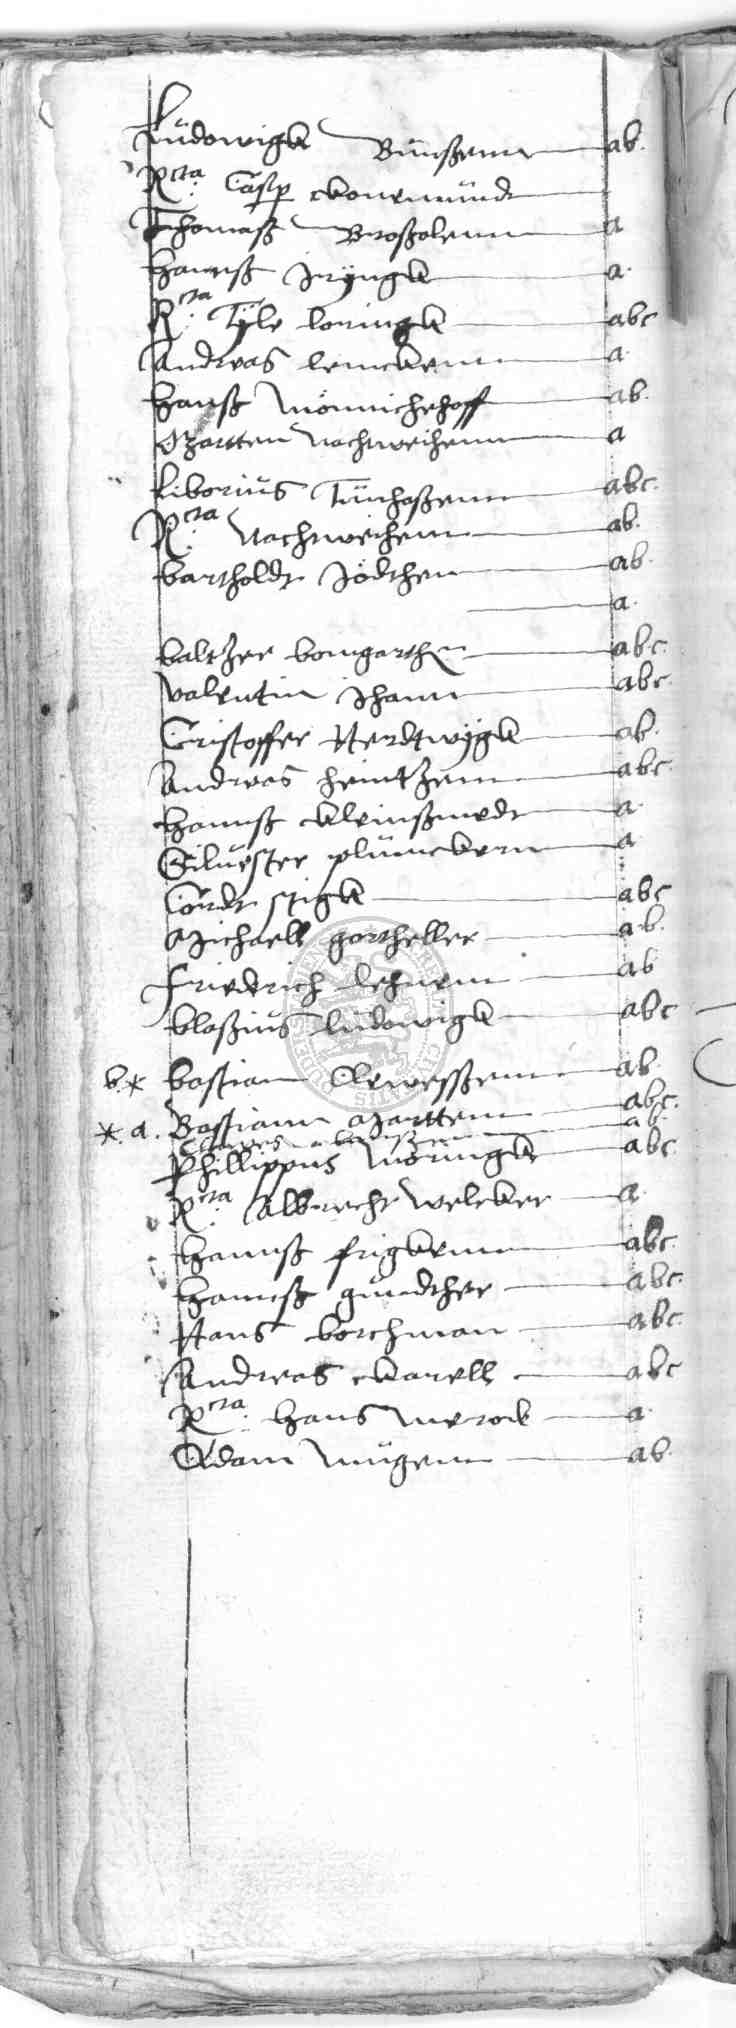 Ludowigk Bunßenn ab.
Rcta Casp ckonemundt
Thomaß Broßolenn a
Hannß Jryngk a.
Rcta Tyle loningk abc
Andreas lenickenn a
Hanß Mönnichehoff ab.
Martten Nachtweihenn a
Liborius Tunhoßenn abc.
Rcta Nachtweihenn ab.
bartholdt Jödthen ab.
a.
baltzer bomgarthen abc.
Valentin Jhann abc.
Cristoffer Herdtwygk ab.
Andreas heintzenn abc.
Hannß Kleinßmedt a
Siluester plumckenn a
Cordt stigk abc
Michaell gortheller ab.
Friederich lesenn ab
blaßius ludowigk abc
b.* bastian Clewessenn ab.
*. a. Bastiann Martten abc.
ab.
Phillippus Moringk abc.
Rcta Albrecht Welcker a
Hannß frigkenn abc.
Hannß gundther abc.
Hans borchman abc.
Andreas ckarell abc
Rcta Hans Merock a
Adam Mugenn ab.